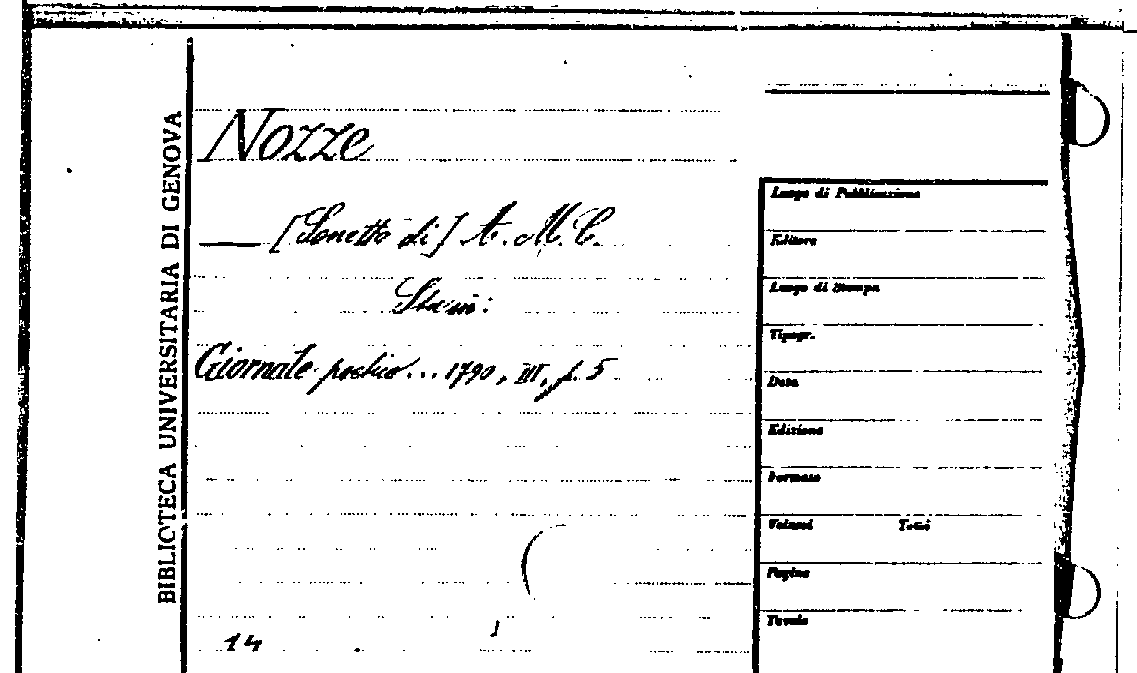 BIBLIOTECA UNIVERSITARIA DI GENOVA
Nozze
— [Sonetto di] A. M. C.
Sta in:
Giornale poetico... 1790, III, p. 5
14
Luogo di Pubblicazione
Editore
Luogo di Stampa
Tipogr.
Data
Edizione
Formato
Volumi Tomi
Pagine
Tavole